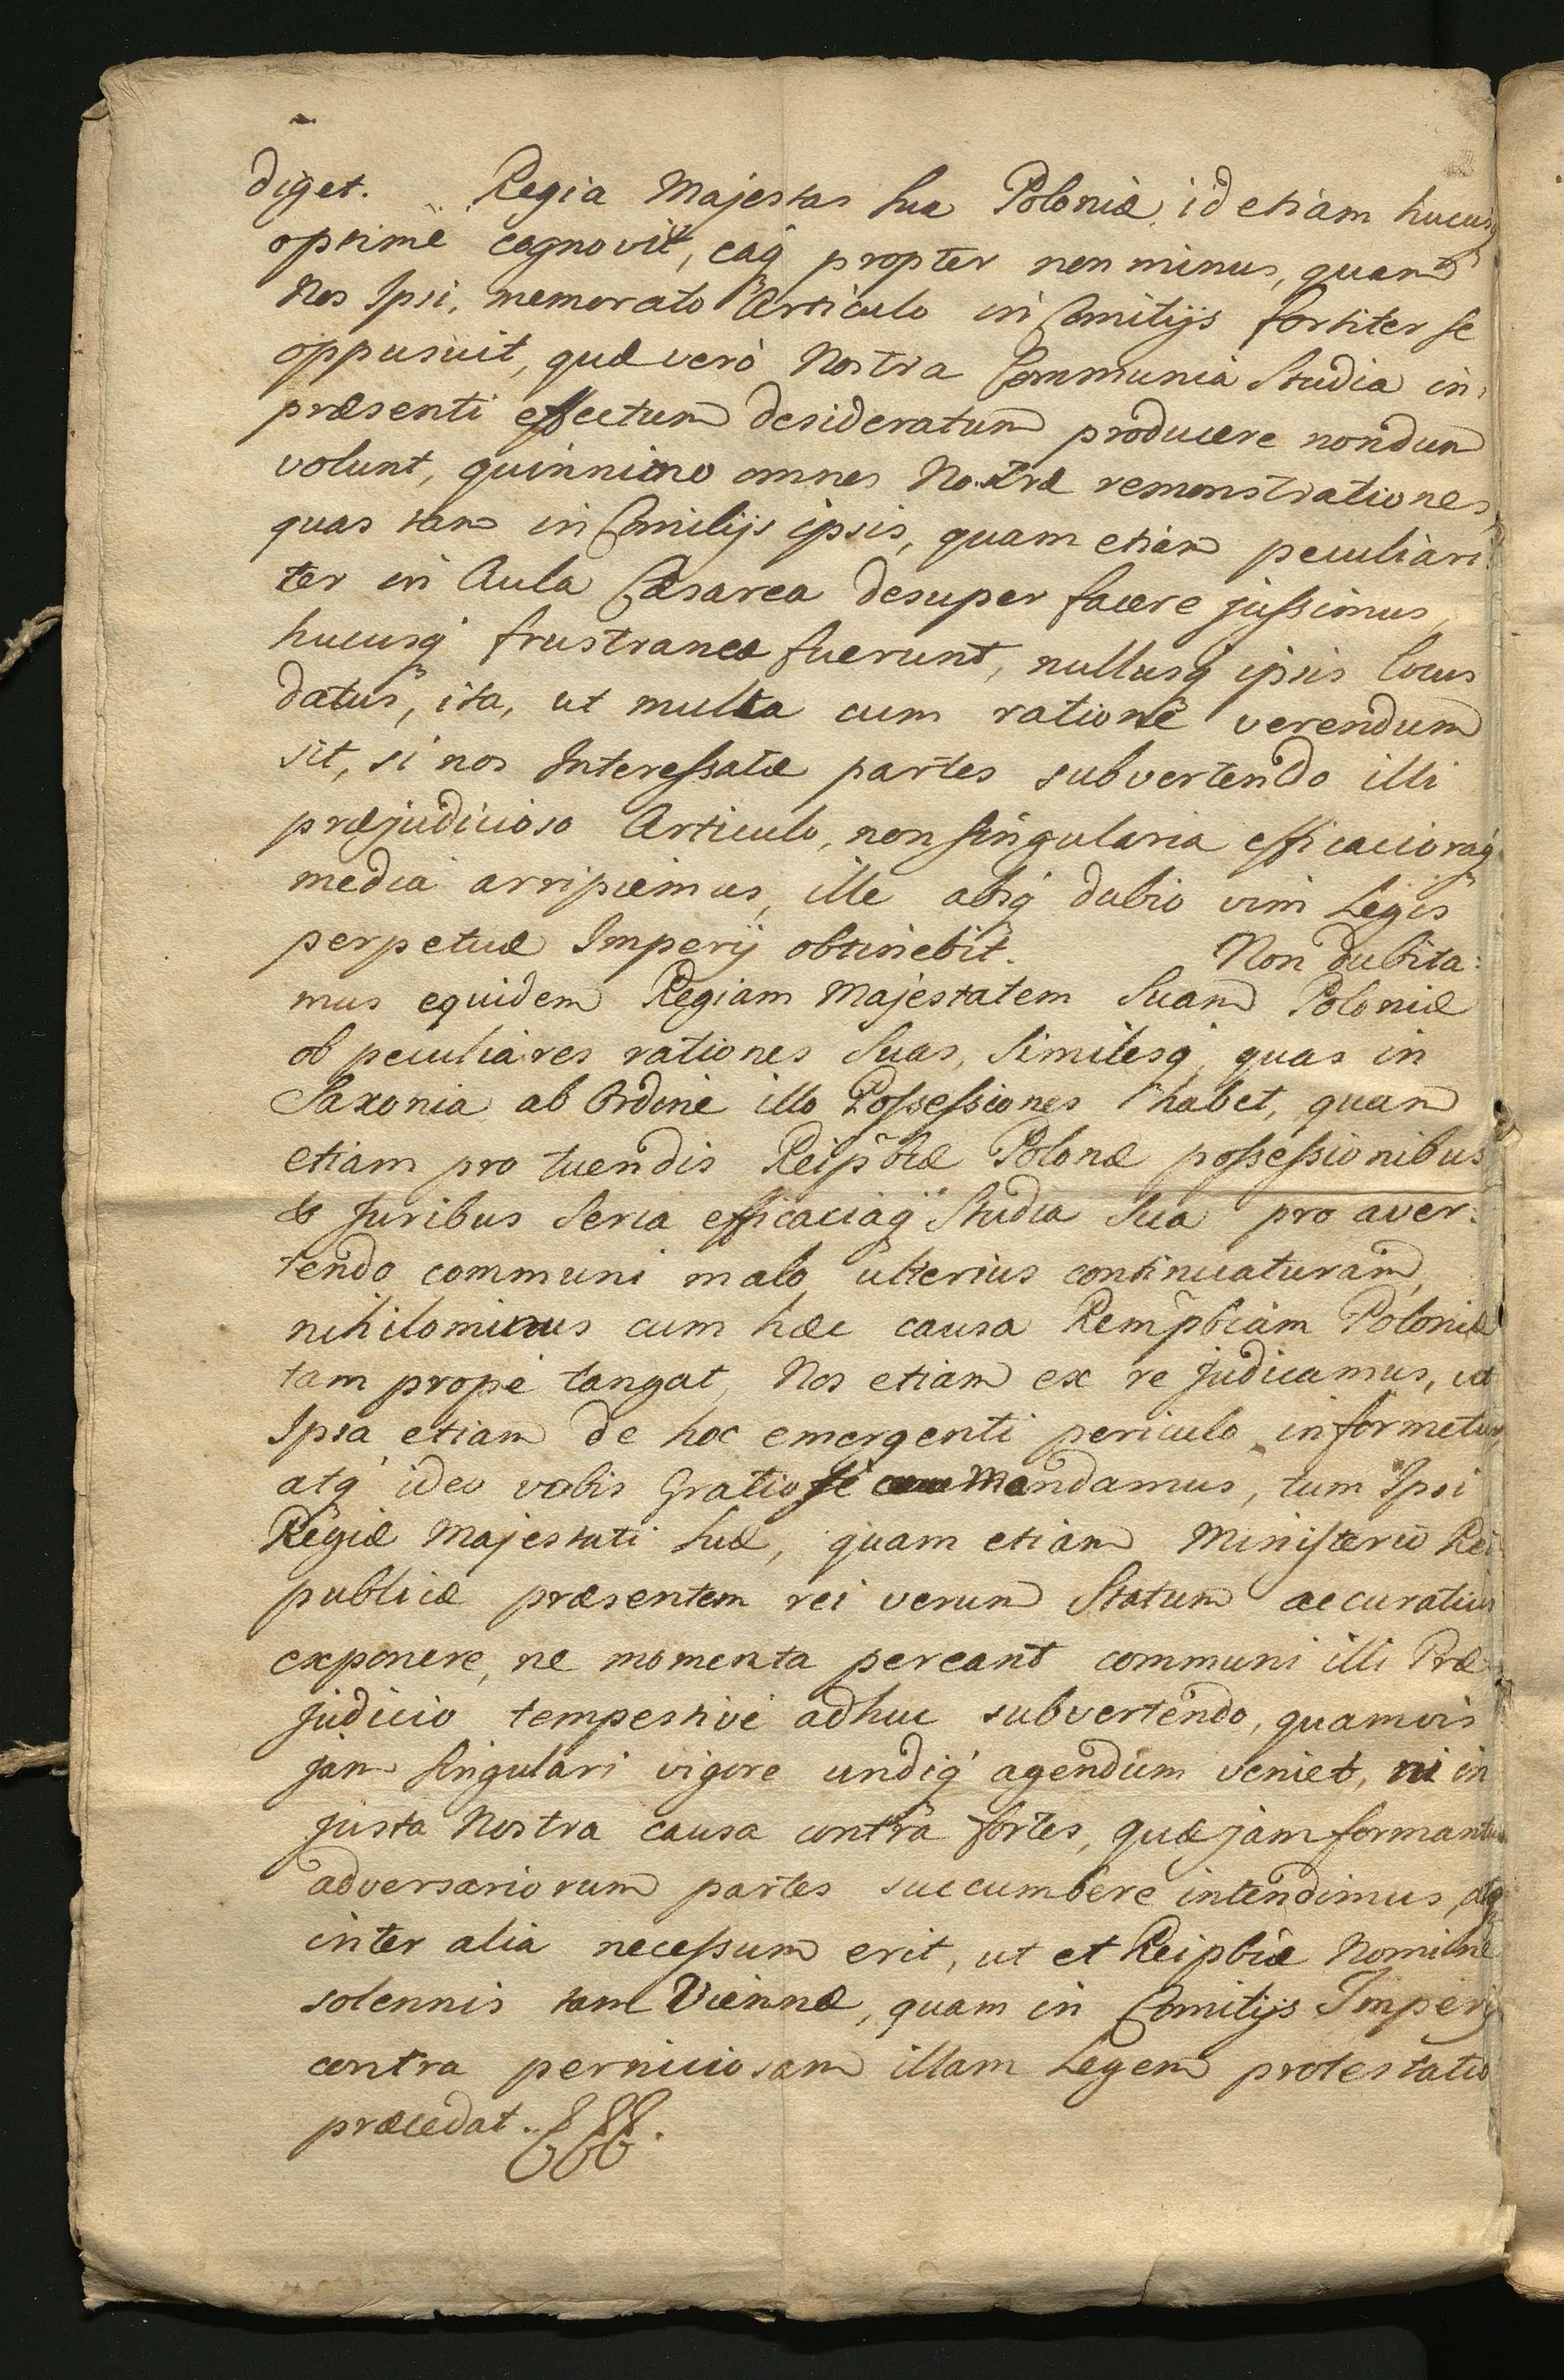 diget. Regia Majestas sua Poloniæ id etiam hucusq
optimè cognovit, eaq propter non minus, quam
Nos Ipsi, memorato Articulo in Comitijs fortiter se
opposuit, quæ verò Nostra Communia Studia in
præsenti effectum desideratum producere nondum
volunt, quinnimo omnes Nostræ remonstrationes,
quas tam in Comitijs ipsis, quam etiam peculiari:
ter in Aula Cæsarea desuper facere jussimus,
hucusq frustraneæ fuerunt, nullusq ipsis locus
datus, ita, ut multa cum ratione verendum
sit, si nos Interessatæ partes subvertendo illi
præjudicioso Articulo, non singularia efficacioraq
media arripiemus, ille absq dubio vim Legis
perpetuæ Imperij obtinebit. Non dubita:
mus equidem Regiam Majestatem Suam Poloniæ
ob peculiares rationes Suas, Similesq, quas in
Saxonia ab Ordine illo Possessiones habet, quam
etiam pro tuendis Reipblæ Polonæ possessionibus
& Juribus Seria efficaciaq Studia Sua pro aver:
tendo communi malo ulterius continuaturam,
nihilominus cum hæc causa Rempbcam Poloniæ
tam propè tangat, Nos etiam ex re judicamus, ut
Ipsa etiam de hoc emergenti periculo informetur,
atq ideo vobis Gratiose Mandamus, tum Ipsi
Regiæ Majestati suæ, quam etiam Ministerio Rei
publicæ præsentem rei verum Statum accuratius
exponere, ne momenta pereant communi illi Præ
judicio tempestivè adhuc subvertendo, quamvis
jam Singulari vigore undiq agendum veniet, ni in
justa Nostra causa contra fortes, quæ jam formantur
adversariorum partes succumbere intendimus, atq
inter alia necessum erit, ut et Reipblæ Nomine
solennis tam Viennæ, quam in Comitijs Imperij
contra perniciosam illam Legem protestatio
præcedat.